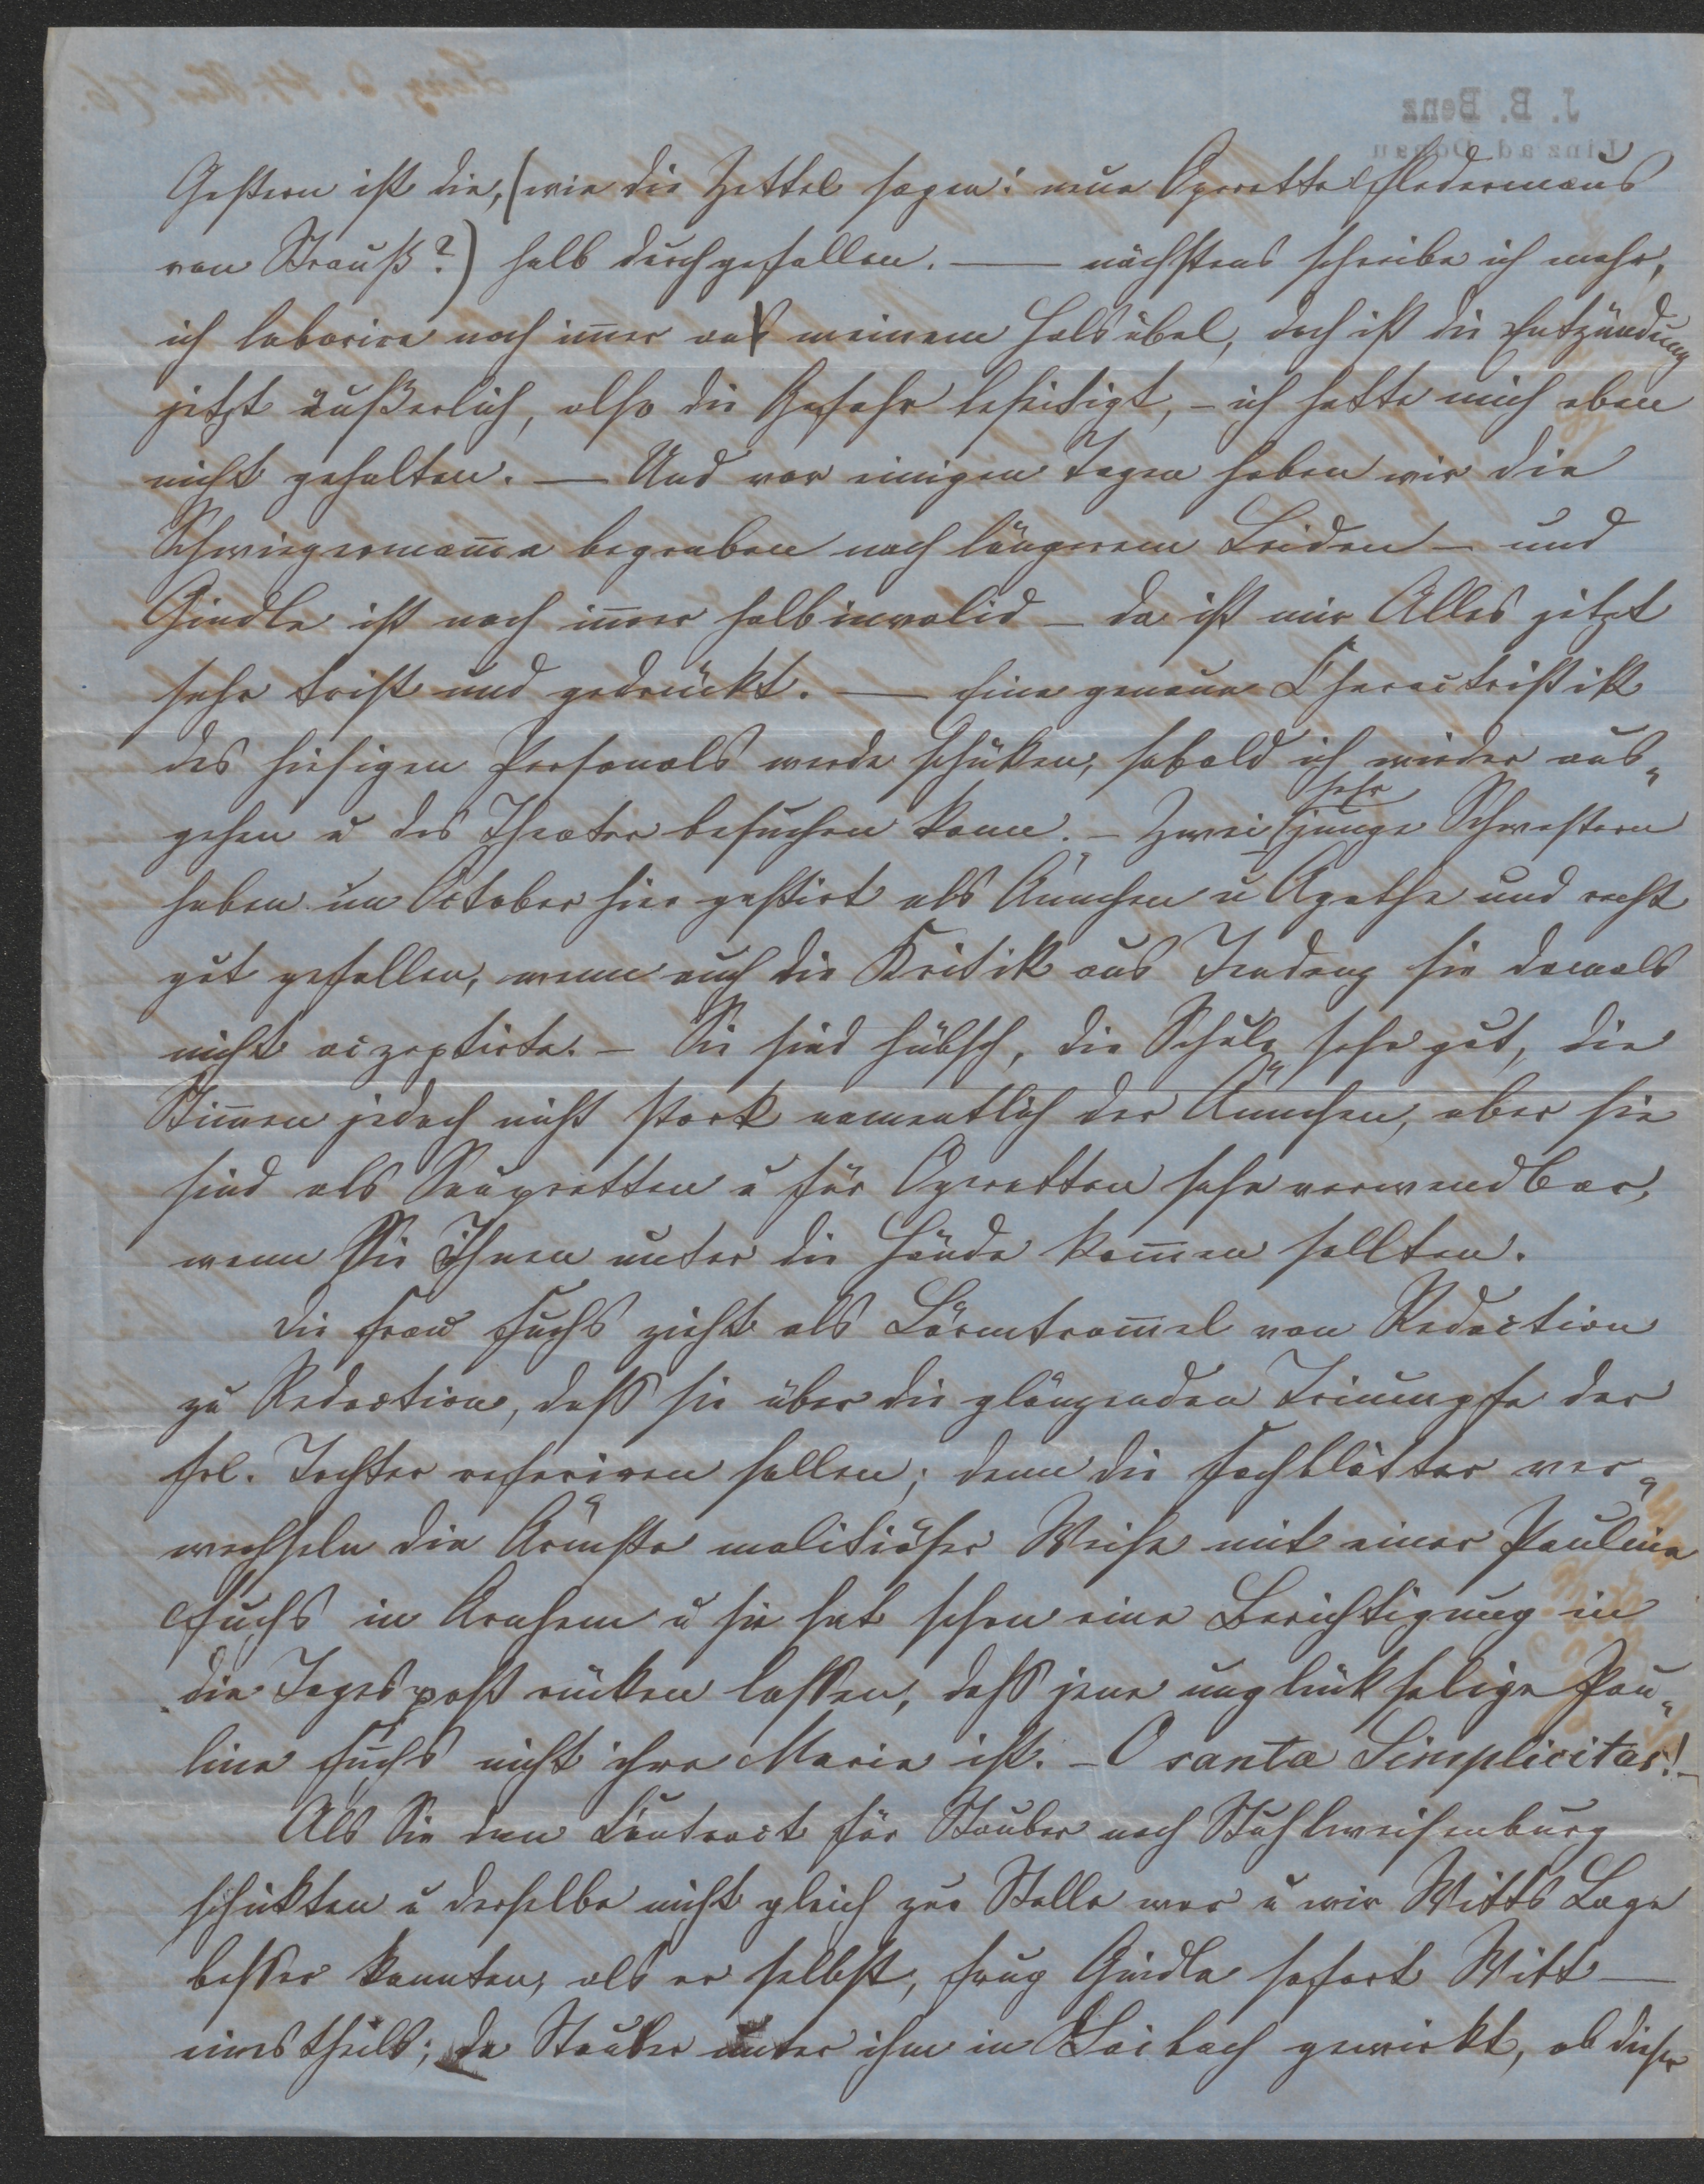 Gestern ist die, (wie die Zettel sagen: neue Operette Fledermaus
von Strauß?) halb durchgefallen. — nächstens schreibe ich mehr,
ich laborire noch im̅er an meinem Halsübel, doch ist die Entzündung
jetzt äußerlich, also die Gefahr beseitigt, – ich hatte mich eben
nicht gehalten. — Und vor einigen Tagen haben wir die
Schwiegermam̅a begraben nach längerem Leiden – und
Gindla ist noch im̅er halbinvalid – da ist mir Alles jetzt
sehr trist und gedrückt. — Eine genaue Charactristik
des hiesigen Personals werde schicken, sobald ich wieder aus„
gehen u das Theater besuchen kann. – Zwei sehr junge Schwestern
haben im October hier gastirt als Ännchen u Agathe und recht
gut gefallen, wenn auch die Kritik aus Tendenz sie damals
nicht aczeptirte. – Sie sind hübsch, die Schule sehr gut, die
Stim̅en jedoch nicht stark namentlich der Ännchen, aber sie
sind als Soupretten u für Operetten sehr verwendbar,
wenn Sie Ihnen unter die Hände kom̅en sollten.
Die Frau Fuchs zieht als Lärmtrom̅el von Redaction
zu Redaction, daß sie über die glänzenden Triumpfe der
Frl. Tochter referiren sollen; denn die Fachblätter ver„
wechseln die Ärmste malitiöser Weise mit einer Pauline
Fuchs in Arnhem u sie hat schon eine Berichtigung in
die Tagespost rücken lassen, daß jene unglückselige Pau„
line Fuchs nicht ihre Marie ist. – O santa Simplicitas! –
Als Sie den Contract für Stauber nach Stuhlweisenburg
schickten u derselbe nicht gleich zur Stelle war u wir Witts Lage
besser kannten, als er selbst, frug Gindla sofort Witt —
einestheils; da Stauber unter ihm in Laibach gewirkt, ob dieser
J. B. Benz
Linz a d Donau